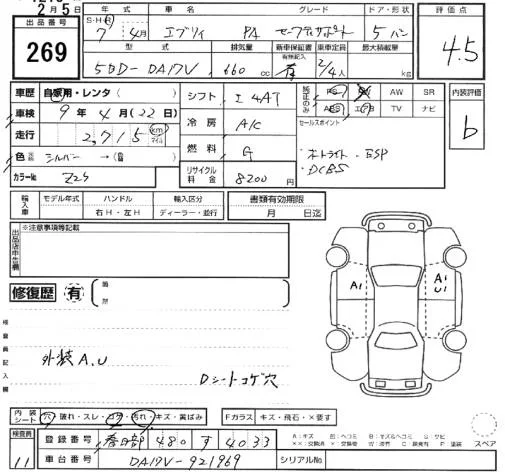 2月5日
出品番号
269
年式 車名 グレード ドア・形状
S・H・R 7年 4月 エブリイ PA セーフティサポート 5バン
型式 排気量 新車保証書 乗車定員 最大積載量
有無記入
5BD-DA17V 660cc 有 2/4人 kg
評価点
4.5
車歴 自家用・レンタ( )
車検 9年4月(22日)
走行 2,715 km マイル
色 シルバー →( )
カラーNo Z2S
シフト I 4AT
冷房 A/C
燃料 G
リサイクル料金 8200円
純正のみ PS PW AW SR
ABS エアB TV ナビ
セールスポイント
・オートライト・ESP
・DCBS
内装評価
b
輸入車 モデル年式 ハンドル 輸入区分
右H・左H ディーラー・並行
書類有効期限
月 日迄
出品店申告欄
※注意事項等記載
修復歴 有
検査員記入欄
外装 A.U
Dシートコゲ穴
A1
A1
U1
内装シート 穴・破れ・スレ・コゲ・汚れ・キズ・黄ばみ
Fガラス キズ・飛石・×要す
検査員
11
登録番号 春日部 480 す 4033
車台番号 DA17V-921969
シリアルNo.
A:キズ
スペア